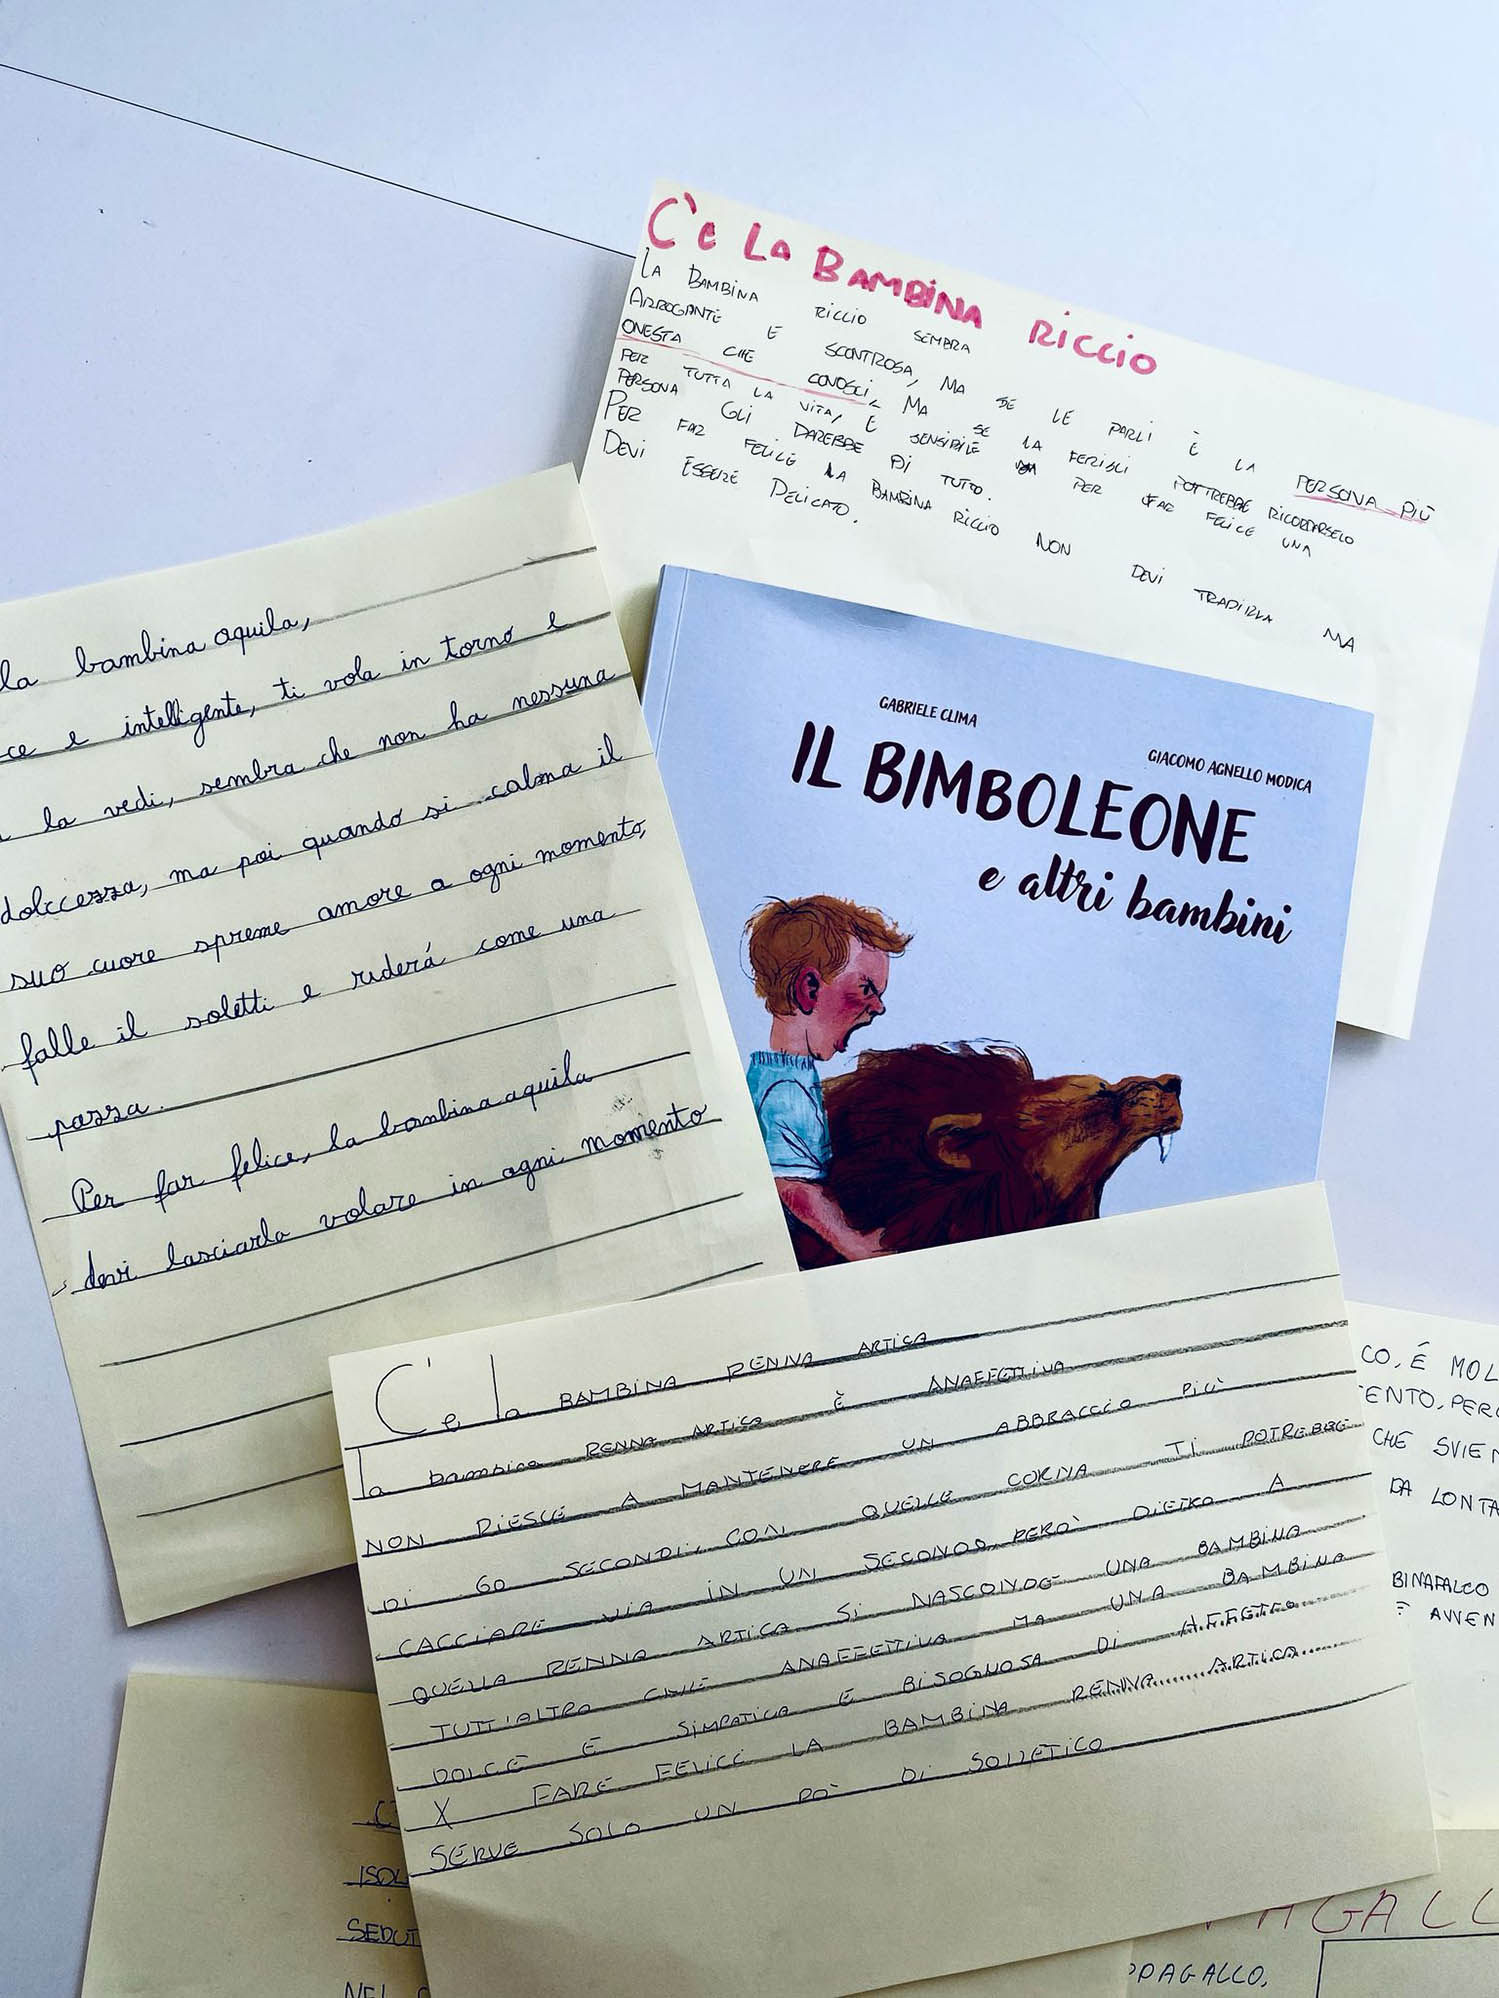 C'è LA BAMBINA RICCIO
LA BAMBINA RICCIO SEMBRA
ARROGANTE E SCONTROSA, MA SE LE PARLI È LA PERSONA PIÙ
ONESTA CHE CONOSCI, MA SE LA FERISCI POTTREBBE RICORDARSELO
PER TUTTA LA VITA, E SENSIBILE PER FAR FELICE UNA
PERSONA GLI DAREBBE DI TUTTO.
PER FAR FELICE LA BAMBINA RICCIO NON DEVI TRADIRLA MA
DEVI ESSERE DELICATO.
la bambina aquila,
ce e intelligente, ti vola in torno e
la vedi, sembra che non ha nessuna
dolccezza, ma poi quando si calma il
suo cuore spreme amore a ogni momento,
falle il soletti e riderá come una
pazza.
Per far felice, la bambina aquila
devi lasciarla volare in ogni momento
GABRIELE CLIMA
GIACOMO AGNELLO MODICA
IL BIMBOLEONE
e altri bambini
C'e la BAMBINA RENNA ARTICA
la bambina RENNA ARTICA È ANAFFETTIVA
NON RIESCE A MANTENERE UN ABBRACCIO PIÙ
DI 60 SECONDI, CON QUELLE CORNA TI POTREBBE
CACCIARE VIA IN UN SECONDO, PERÒ DIETRO A
QUELLA RENNA ARTICA SI NASCONDE UNA BAMBINA
TUTT'ALTRO CHE ANAFFETTIVA MA UNA BAMBINA
DOLCE E SIMPATICA E BISOGNOSA DI AFFETTO
X FARE FELICE LA BAMBINA RENNA ARTICA
SERVE SOLO UN PO' DI SOLLETICO
CO, É MOL
ENTO, PERC
CHE SVIEN
DA LONTA
BINAFALCO
È AVVEN
C'
ISOL
SEDUT
NEL
PAGALL
PPAGALLO,